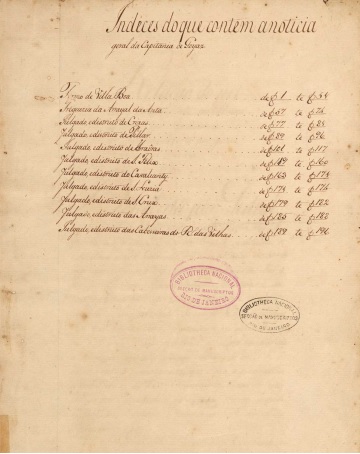 Indeces do que contèm a noticia
geral da Capitanîa de Goyaz
Termo de Villa Boa de f. 1 te f. 54
Freguezia do Arrayal de Anta de f. 57 te f. 75
Julgado, e destricto de Crixas de f. 77 te f. 88
Julgado, e destricto de Pillar de f. 89 te f. 96
Julgado, e destricto de Trahiras de f. 101 te f. 117
Julgado, e destricto de S. Felix de f. te f. 160
Julgado, e destricto de Cavalcante de f. 163 te f. 173
Julgado, e destricto de S. de f. 173 te f. 176
Julgado, e destricto de S. Cruz de f. 179 te f. 182
Julgado, e destricto das de f. 185 te f. 188
Julgado, e destricto das Cabeceiras do R. das Velhas de f. 189 te f. 196
BIBLIOTHECA NACIONAL
SECÇÃO DE MANUSCRIPTOS
RIO DE JANEIRO
BIBLIOTHECA NACIONAL
SECÇÃO DE MANUSCRIPTOS
RIO DE JANEIRO